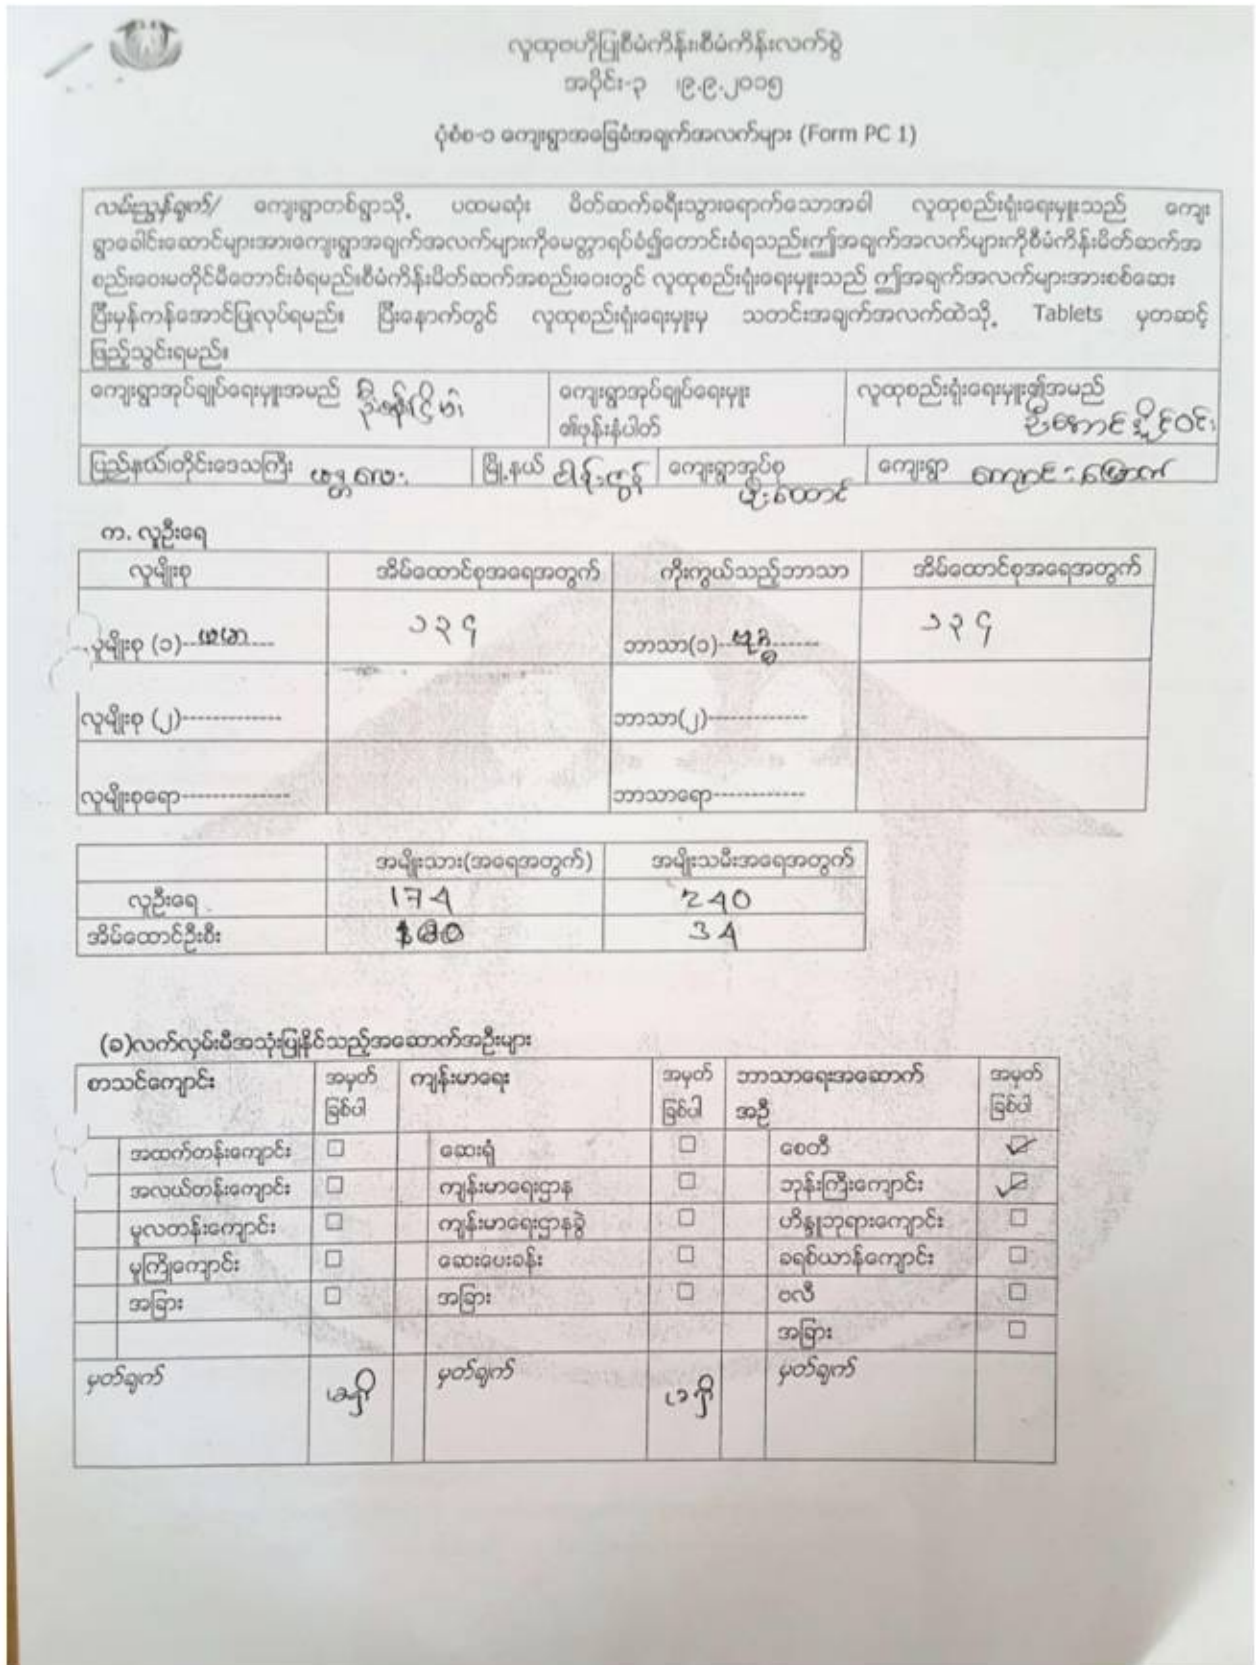 လူထုဗဟိုပြုစီမံကိန်း၊စီမံကိန်းလက်စွဲ
အပိုင်း-၃ ၊၉.၉.၂၀၁၅
ပုံစံစ-၁ ကျေးရွာအခြေခံအချက်အလက်များ (Form PC 1)
လမ်းညွှန်ချက်/ ကျေးရွာတစ်ရွာသို့ ပထမဆုံး မိတ်ဆက်ခရီးသွားရောက်သောအခါ လူထုစည်းရုံးရေးမှူးသည် ကျေး
ရွာခေါင်းဆောင်များအားကျေးရွာအချက်အလက်များကိုမေတ္တာရပ်ခံ၍တောင်းခံရသည်။ဤအချက်အလက်များကိုစီမံကိန်းမိတ်ဆက်အ
စည်းဝေးမတိုင်မီတောင်းခံရမည်။စီမံကိန်းမိတ်ဆက်အစည်းဝေးတွင် လူထုစည်းရုံးရေးမှူးသည် ဤအချက်အလက်များအားစစ်ဆေး
ပြီးမှန်ကန်အောင်ပြုလုပ်ရမည်။ ပြီးနောက်တွင် လူထုစည်းရုံးရေးမှူးမှ သတင်းအချက်အလက်ထဲသို့ Tablets မှတဆင့်
ဖြည့်သွင်းရမည်။
ကျေးရွာအုပ်ချုပ်ရေးမှူးအမည် ကျေးရွာအုပ်ချုပ်ရေးမှူး လူထုစည်းရုံးရေးမှူး၏အမည်
၏ဖုန်းနံပါတ် ဦးအောင်နိုင်ဝင်း
ပြည်နယ်၊တိုင်းဒေသကြီး မန္တလေး မြို့နယ် ငါန်းဇွန် ကျေးရွာအုပ်စု ကျေးရွာ ကျောင်းမြောက်
က. လူဦးရေ
လူမျိုးစု အိမ်ထောင်စုအရေအတွက် ကိုးကွယ်သည့်ဘာသာ အိမ်ထောင်စုအရေအတွက်
လူမျိုးစု (၁)--ဗမာ---- ၁၃၄ ဘာသာ(၁)--ဗုဒ္ဓ------ ၁၃၄
လူမျိုးစု (၂)------------- ဘာသာ(၂)-------------
လူမျိုးစုရော-------------- ဘာသာရော------------
အမျိုးသား(အရေအတွက်) အမျိုးသမီးအရေအတွက်
လူဦးရေ 174 240
အိမ်ထောင်ဦးစီး 100 34
(ခ)လက်လှမ်းမီအသုံးပြုနိုင်သည့်အဆောက်အဦးများ
စာသင်ကျောင်း အမှတ် ကျန်းမာရေး အမှတ် ဘာသာရေးအဆောက် အမှတ်
ခြစ်ပါ ခြစ်ပါ အဦ ခြစ်ပါ
အထက်တန်းကျောင်း □ ဆေးရုံ □ စေတီ ☑
အလယ်တန်းကျောင်း □ ကျန်းမာရေးဌာန □ ဘုန်းကြီးကျောင်း ☑
မူလတန်းကျောင်း □ ကျန်းမာရေးဌာနခွဲ □ ဟိန္ဒူဘုရားကျောင်း □
မူကြိုကျောင်း □ ဆေးပေးခန်း □ ခရစ်ယာန်ကျောင်း □
အခြား □ အခြား □ ဗလီ □
အခြား □
မှတ်ချက် မရှိ မှတ်ချက် မရှိ မှတ်ချက်